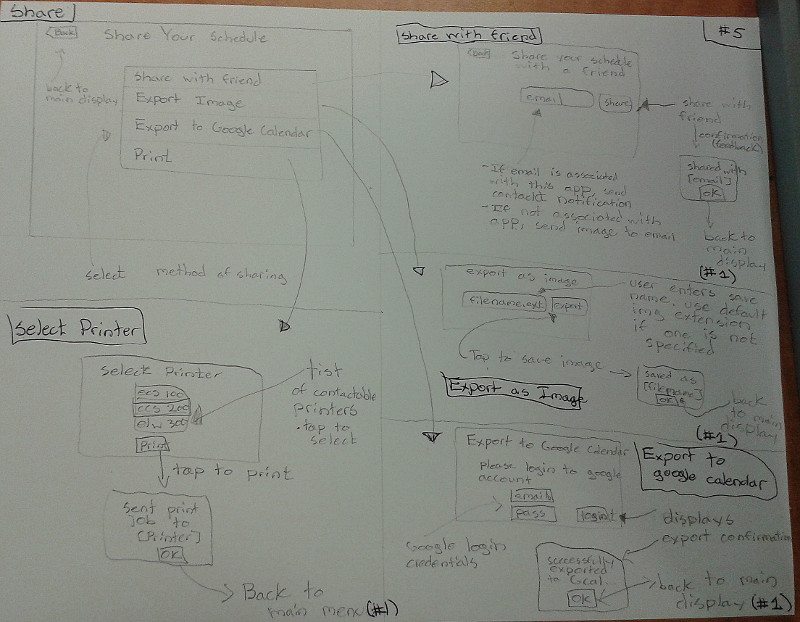 Share
Back
Share Your Schedule
back to
main display
Share with friend
Export Image
Export to Google Calendar
Print
select method of sharing
#5
Share with friend
Back
Share your schedule
with a friend
email
share
share with
friend
confirmation
(feedback)
shared with
[email]
OK
back to
main
display
(#1)
- If email is associated
with this app, send
contact notification
- If not associated with
app, send image to email
export as image
filename.ext
export
user enters save
name. use default
img extension
if one is not
specified
Tap to save image
saved as
[filename]
OK
back to
main
display
(#1)
Export as Image
Select Printer
Select Printer
ccs 100
ccs 200
elw 300
Print
list
of contactable
printers
• tap to
select
tap to print
Sent print
job to
[Printer]
OK
Back to
main menu (#1)
Export to Google Calendar
please login to google
account
email
pass
login
Export to
google calendar
Google login
credentials
displays
export confirmation
successfully
exported
to Gcal...
OK
back to main
display (#1)